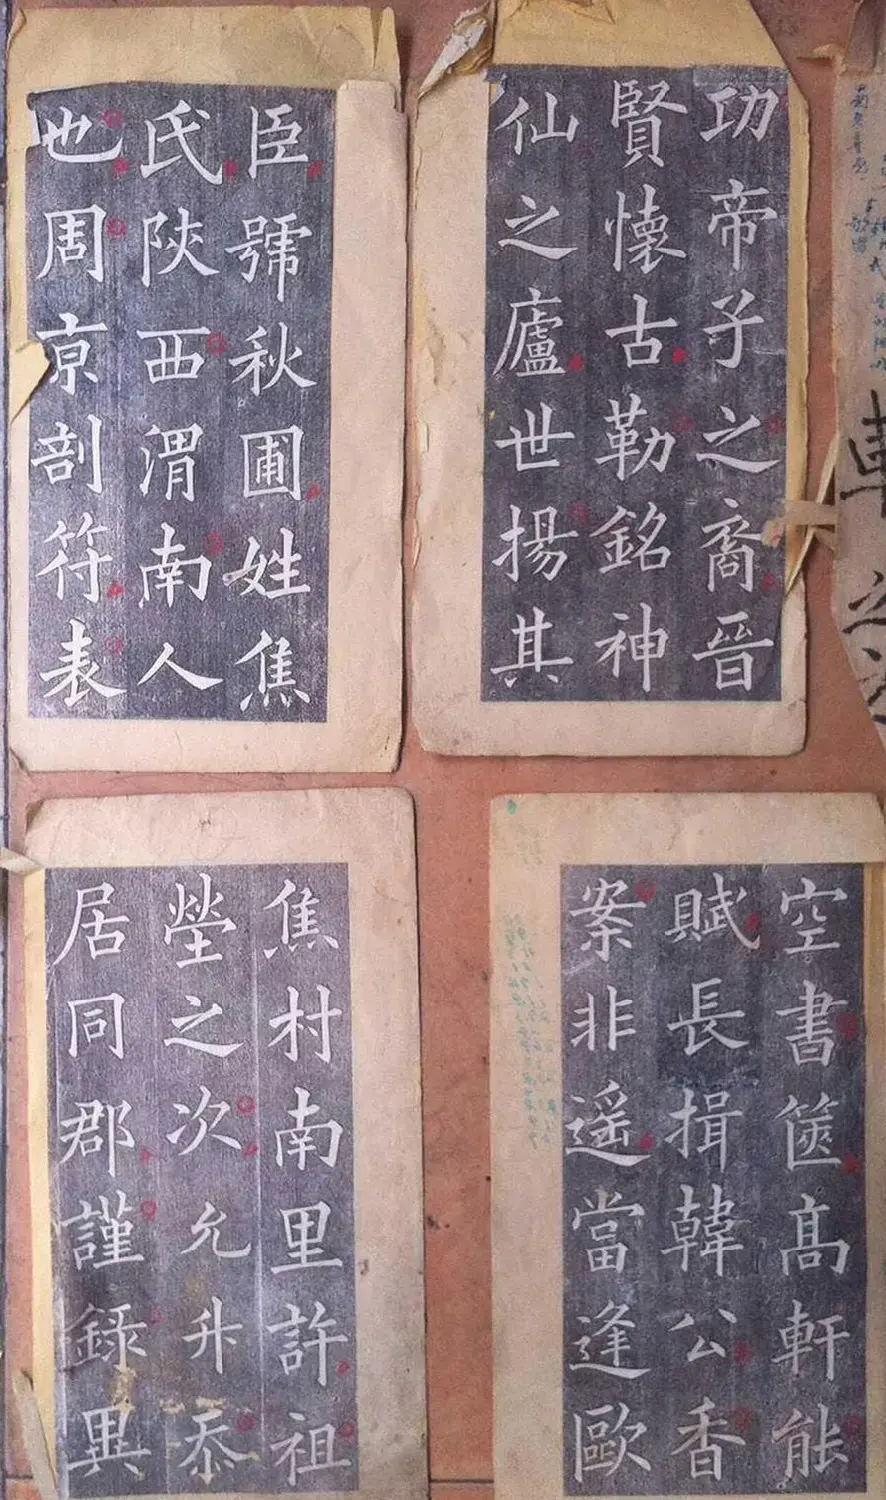 臣號秋圃姓焦
氏陝西渭南人
也周京剖符表
功帝子之裔晉
賢懷古勒銘神
仙之廬世揚其
焦村南里許祖
塋之次允升忝
居同郡謹錄異
空書篋高軒能
賦長揖韓公香
案非遥當逢歐
車之